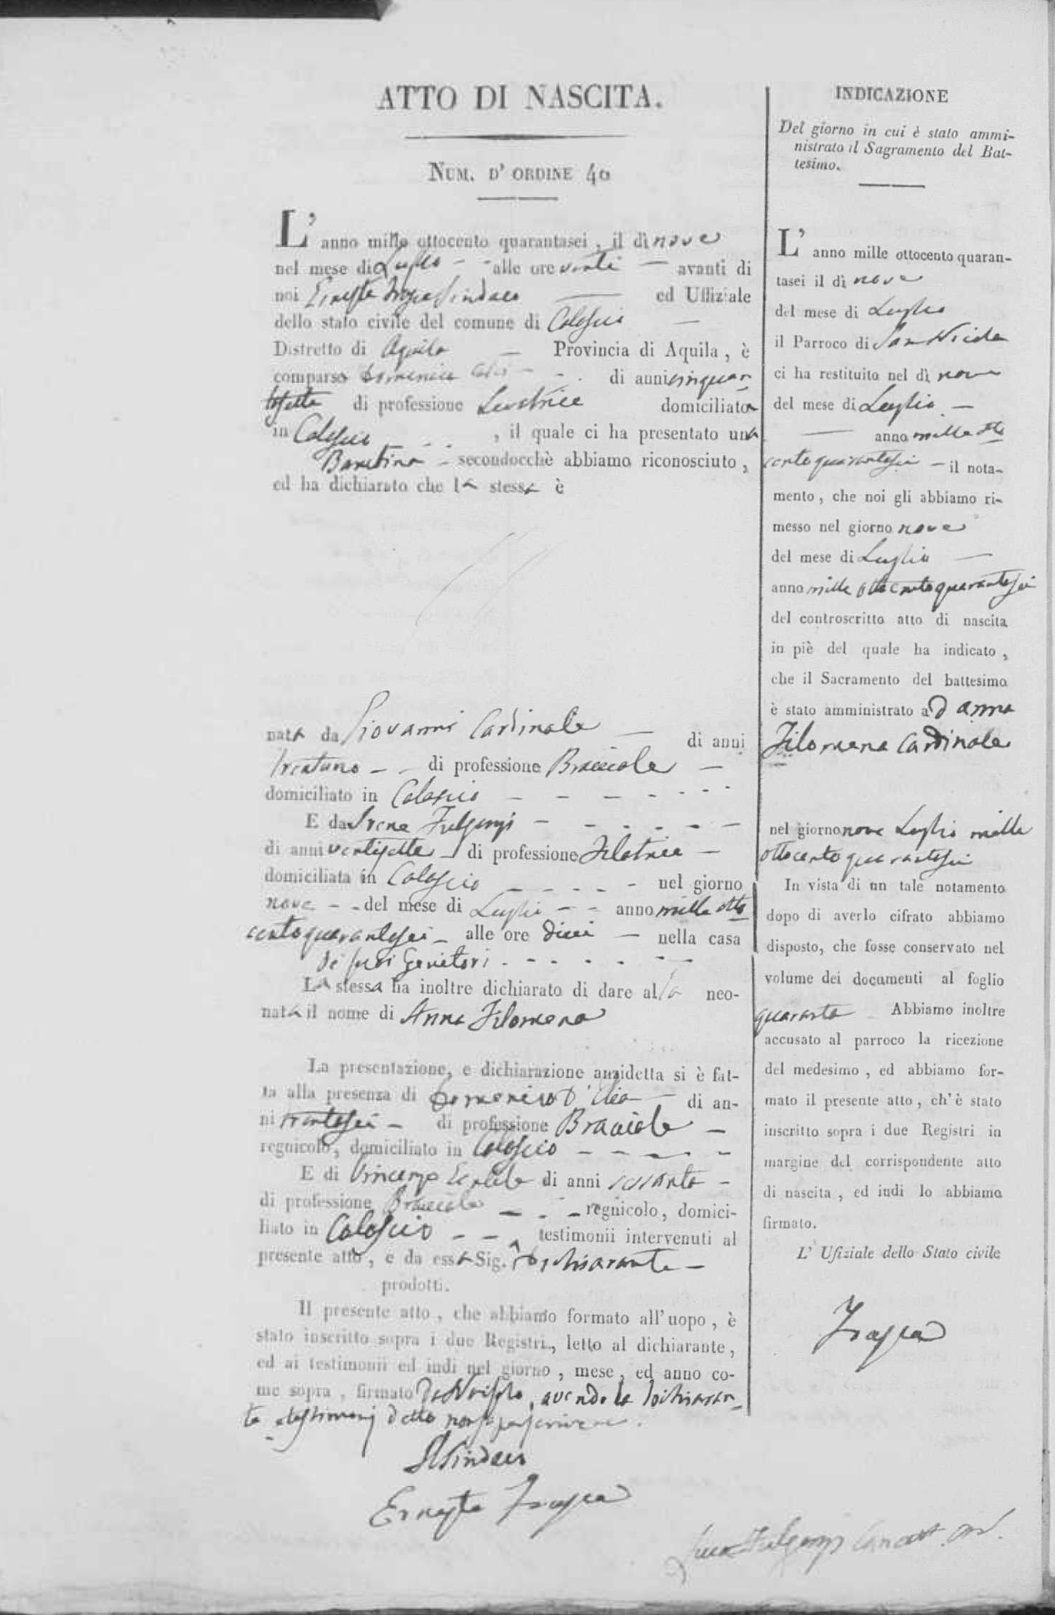 ATTO DI NASCITA.
NUM. D' ORDINE 40
L' anno mille ottocento quarantasei, il dì nove
nel mese di Luglio - - alle ore venti — avanti di
noi Ernesto Frasca Sindaco — ed Uffiziale
dello stato civile del comune di Calascio —
Distretto di Aquila — Provincia di Aquila, è
comparsa Domenica di anni cinquan
tasette di professione Levatrice domiciliata
in Calascio - - -, il quale ci ha presentato una
Bambina - secondocchè abbiamo riconosciuto,
ed ha dichiarato che la stessa è
nata da Giovanni Cardinale — di anni
trentuno - - di professione Bracciale —
domiciliato in Calascio - - - - - - -
E da Irena Fulgenzi - - - - - -
di anni ventisette - di professione Filatrice —
domiciliata in Calascio - - - - - nel giorno
nove - - del mese di Luglio - - anno mille otto
cento quarantasei - alle ore dieci — nella casa
de' suoi Genitori - - - - - - -
La stessa ha inoltre dichiarato di dare alla neo-
nata il nome di Anna Filomena
La presentazione, e dichiarazione anzidetta si è fat-
ta alla presenza di Domenico D' Elia - di an-
ni trentasei - di professione Bracciale —
regnicolo, domiciliato in Calascio - - - - -
E di Vincenzo di anni sessanta -
di professione Bracciale - - - regnicolo, domici-
liato in Calascio - - - testimonii intervenuti al
presente atto, e da essa Sig. Dichiarante —
prodotti.
Il presente atto, che abbiamo formato all'uopo, è
stato inscritto sopra i due Registri, letto al dichiarante,
ed ai testimonii ed indi nel giorno, mese, ed anno co-
me sopra, firmato da Noi solo, avendo la dichiaran-
te e testimonj detto non saper scrivere.
Il Sindaco
Ernesto Frasca
INDICAZIONE
Del giorno in cui è stato ammi-
nistrato il Sagramento del Bat-
tesimo.
L' anno mille ottocento quaran-
tasei il dì nove
del mese di Luglio
il Parroco di San Nicola
ci ha restituito nel dì nove
del mese di Luglio —
— anno mille otto
cento quarantasei — il nota-
mento, che noi gli abbiamo ri-
messo nel giorno nove
del mese di Luglio —
anno mille ottocento quarantasei
del controscritto atto di nascita
in piè del quale ha indicato,
che il Sacramento del battesimo
è stato amministrato ad Anna
Filomena Cardinale
nel giorno nove Luglio mille
ottocento quarantasei
In vista di un tale notamento
dopo di averlo cifrato abbiamo
disposto, che fosse conservato nel
volume dei documenti al foglio
quaranta Abbiamo inoltre
accusato al parroco la ricezione
del medesimo, ed abbiamo for-
mato il presente atto, ch'è stato
inscritto sopra i due Registri in
margine del corrispondente atto
di nascita, ed indi lo abbiamo
firmato.
L' Ufiziale dello Stato civile
Frasca
Fulgenzj